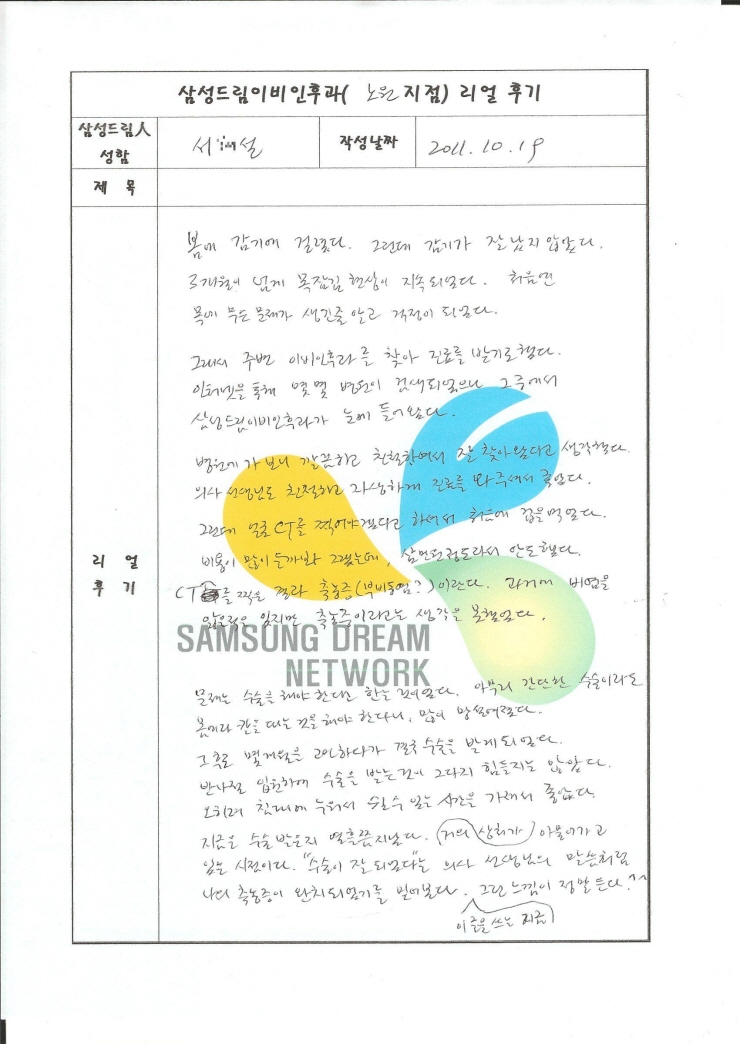 삼성드림이비인후과( 노원 지점) 리얼 후기
삼성드림人 성함
서 설
작성날짜
2011. 10. 19
제 목
리 얼 후 기
봄에 감기에 걸렸다. 그런데 감기가 잘 낫지 않았다.
3개월이 넘게 목잠김 현상이 지속되었다. 처음엔
목에 무슨 문제가 생긴줄 알고 걱정이 되었다.
그래서 주변 이비인후과를 찾아 진료를 받기로했다.
인터넷을 통해 몇몇 병원이 검색되었으나 그중에서
삼성드림이비인후과가 눈에 들어왔다.
병원에 가보니 깔끔하고 친절함에서 잘 찾아왔다고 생각했다.
의사 선생님도 친절하고 자상하게 진료를 봐주셔서 좋았다.
그런데 얼굴 CT를 찍어야겠다고 하셔서 처음에 겁을 먹었다.
비용이 많이 들까봐 그랬는데, 정도라서 안도했다.
CT를 찍은 결과 축농증(부비동염?)이란다. 과거에 비염을
앓은적은 있지만 축농증이라고는 생각을 못했었다.
SAMSUNG DREAM
NETWORK
문제는 수술을 해야 한다고 한 것이었다. 아무리 간단한 수술이라도
몸에다 칼을 대는 것을 해야 한다니, 많이 망설여졌다.
그 후로 몇개월을 고민하다가 결국 수술을 받게 되었다.
반나절 입원하여 수술을 받는것이 그다지 힘들지는 않았다.
오히려 침대에 누워서 쉴 수 있는 시간을 가져서 좋았다.
지금은 수술 받은지 열흘쯤 지났다. 거의 상처가 아물어가고
있는 시점이다. "수술이 잘 되었다"는 의사 선생님의 말씀처럼
나의 축농증이 완치되었기를 빌어본다. 그런 느낌이 정말 든다.^^
이 글을 쓰는 지금